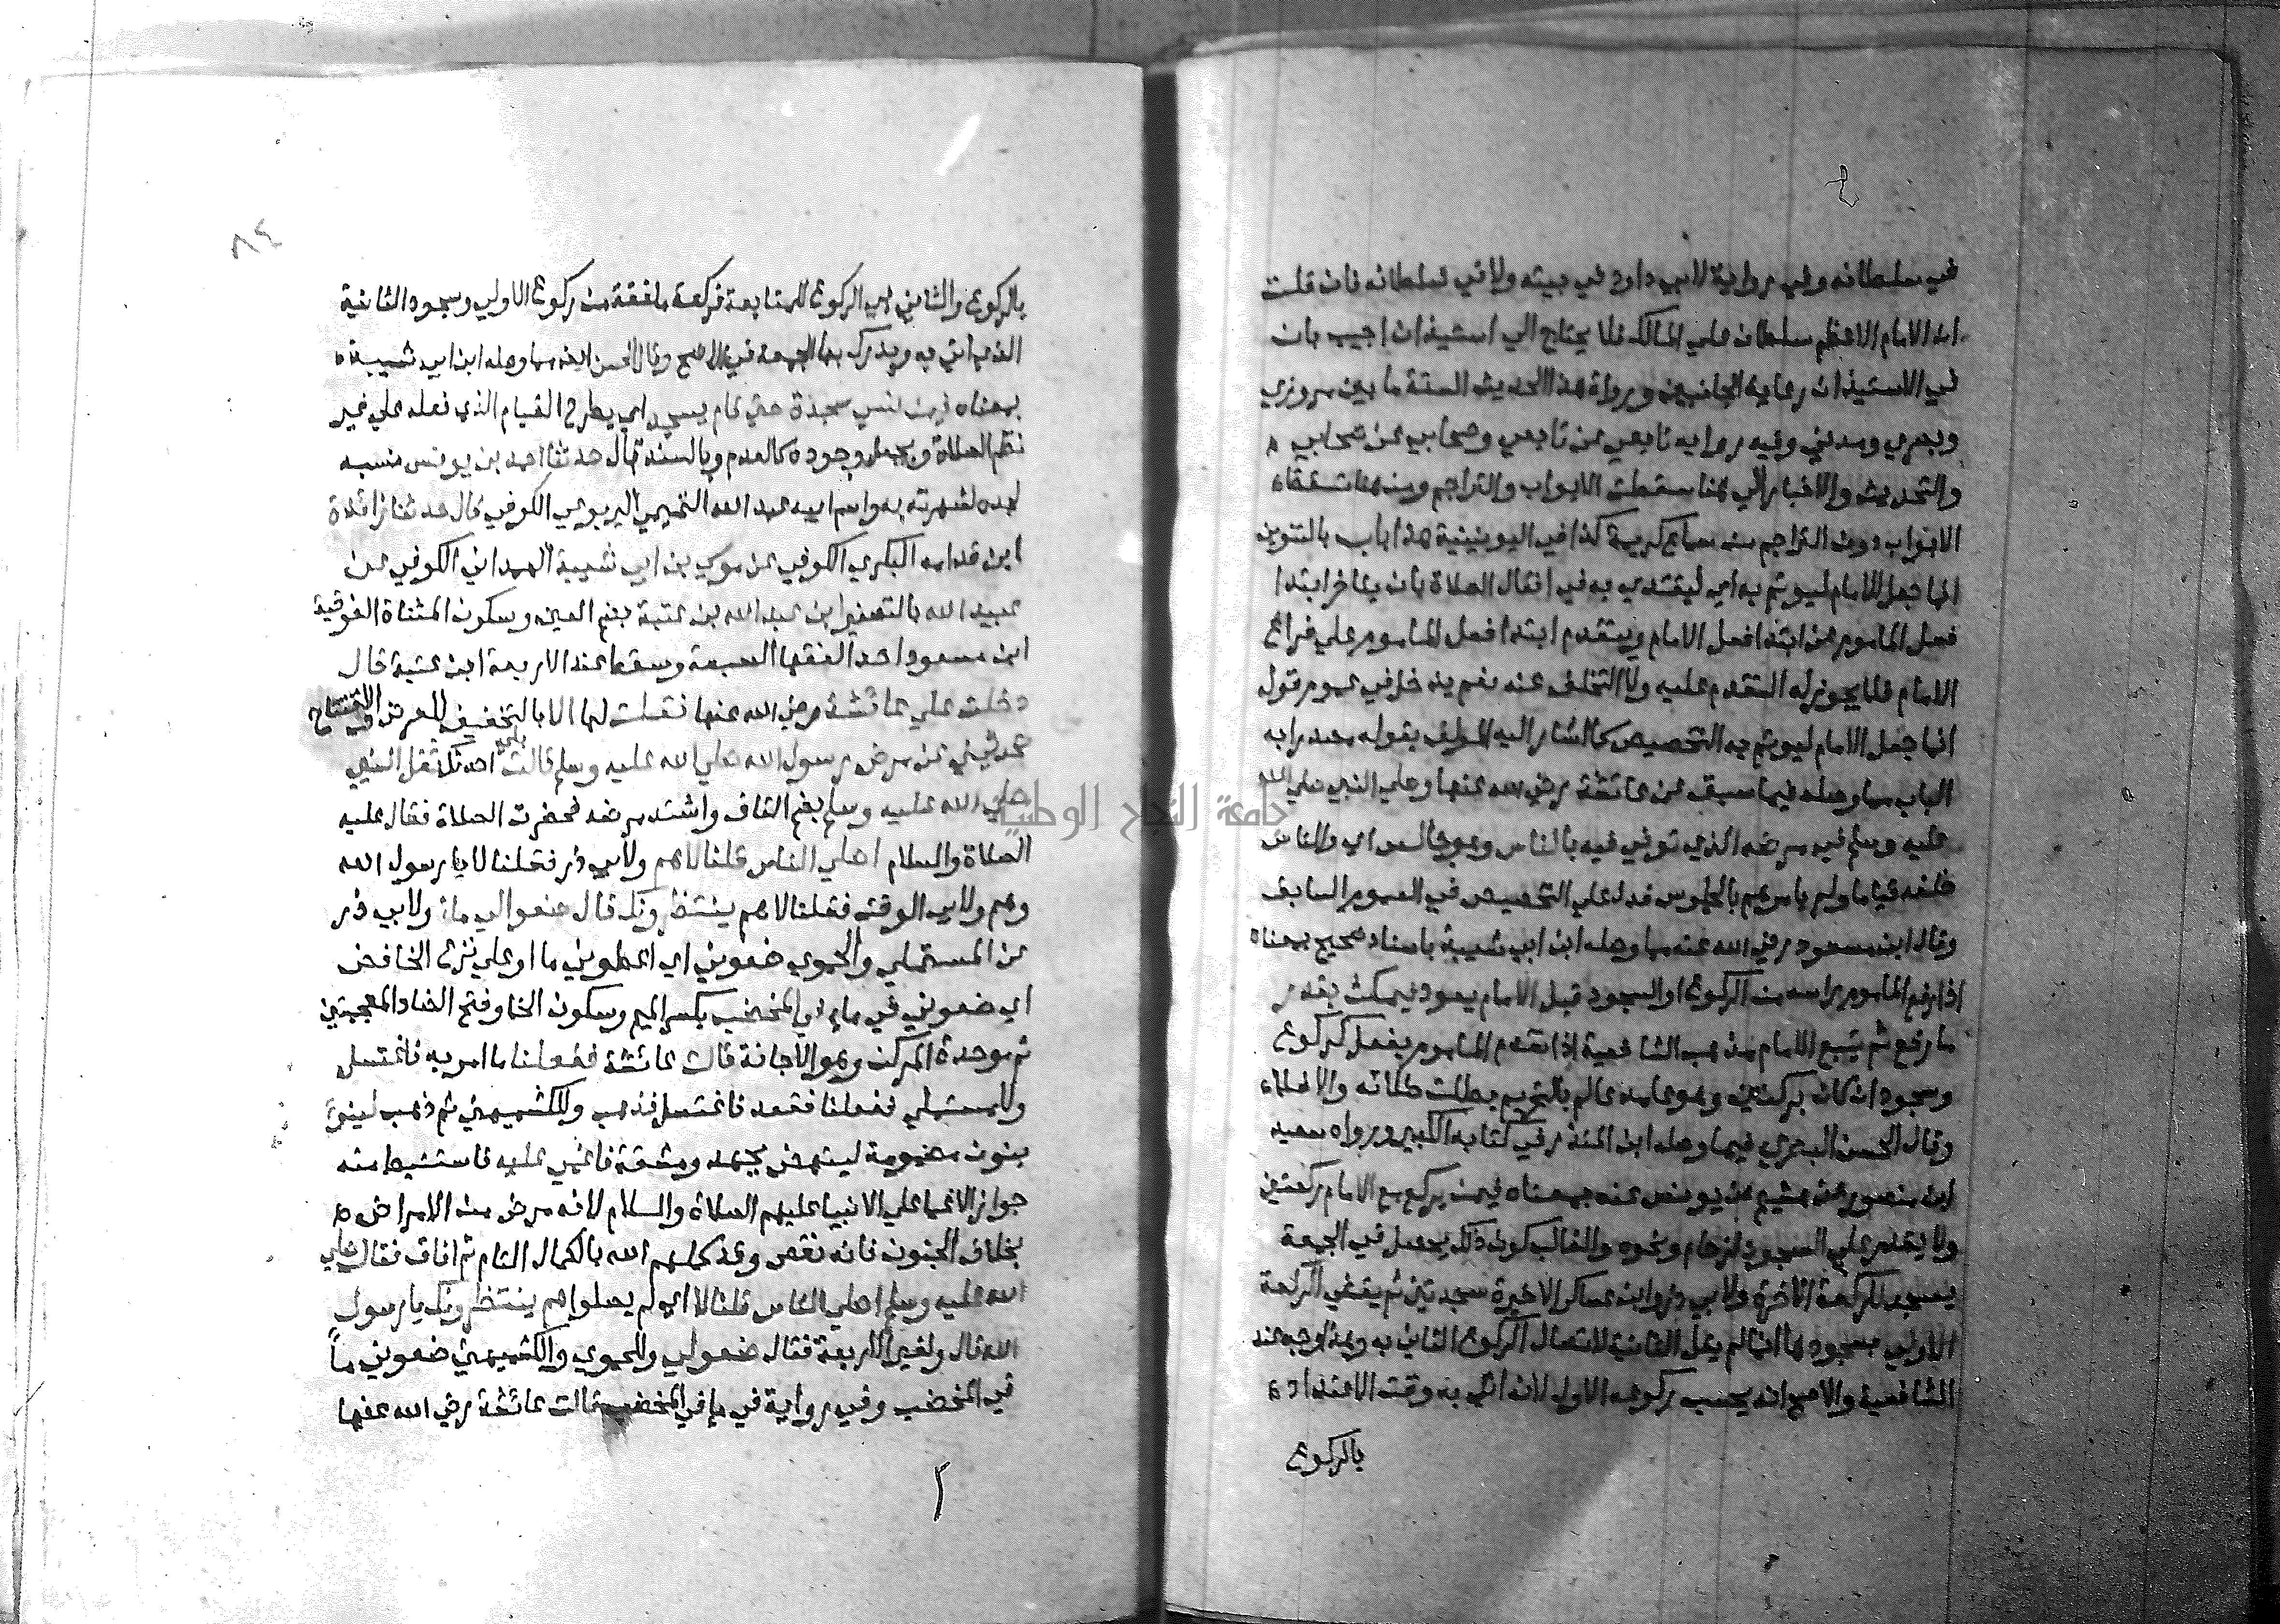 في سلطانه وفي رواية لابي داود في بيته ولا في سلطانه فان قلت
ان الامام الاعظم سلطان علي المالك فلا يحتاج الي استيذان اجيب بان
في الاستيذان رعاية الجانبين ورواة هذا الحديث الستة ما بين مروزي
وبصري ومدني وفيه رواية تابعي عن تابعي وصحابي عن صحابي
والتحديث والاخبار الي هنا سقطت الابواب والتراجم ومن هنا سقط
الابواب دون التراجم من سماع كريمة كذا في اليونينية هذا باب بالتنوين
انما جعل الامام ليوتم به اي ليقتدي به في افعال الصلاة بان يتاخر ابتدا
فعل الماموم عن ابتدا فعل الامام ويتقدم ابتدا فعل الماموم علي فراغ
الامام فلا يجوز له التقدم عليه ولا التخلف عنه نعم يدخل في عموم قوله
انما جعل الامام ليوتم به التخصيص كما اشار اليه المولف بقوله مصدرا به
الباب مما وصله فيما سبق عن عائشة رضي الله عنها وصلي النبي صلي الله
عليه وسلم في مرضه الذي توفي فيه بالناس وهو جالس اي والناس
خلفه قياما ولم يامرهم بالجلوس فدل علي التخصيص في العموم السابق
وقال ابن مسعود رضي الله عنه مما وصله ابن ابي شيبة باسناد صحيح بمعناه
اذا رفع الماموم راسه من الركوع او السجود قبل الامام يعود فيمكث بقدر
ما رفع ثم يتبع الامام مذهب الشافعية اذا تقدم الماموم بفعل كركوع
وسجود ان كان بركنين وهو عامد عالم بالتحريم بطلت صلاته والا فلا
وقال الحسن البصري فيما وصله ابن المنذر في كتابه الكبير ورواه سعيد
ابن منصور عن هشيم عن يونس عنه بمعناه فيمن يركع مع الامام ركعتين
ولا يقدر علي السجود لزحام ونحوه والغالب كون ذلك يحصل في الجمعة
يسجد للركعة الاخرة ولابي ذر وابن عساكر الاخيرة سجدتين ثم يقضي الركعة
الاولي بسجودها انما لم يقل الثانية لاتصال الركوع الثاني به وهذا وجه عند
الشافعية والاصح انه يحسب ركوعه الاول لانه اتي به وقت الاعتداد
بالركوع
٨٤
بالركوع والثاني اي الركوع للمتابعة فركعة ملفقة من ركوع الاولي وسجود الثانية
الذي اتي به ويدرك بها الجمعة في الاصح وقال الحسن ايضا مما وصله ابن ابي شيبة
بمعناه فيمن نسي سجدة حتي قام يسجد اي يطرح القيام الذي فعله علي غير
نظم الصلاة ويجعل وجوده كالعدم وبالسند قال حدثنا احمد بن يونس نسبه
لجده لشهرته به واسم ابيه عبد الله التميمي اليربوعي الكوفي قال حدثنا زائدة
ابن قدامه البكري الكوفي عن موسي بن ابي شيبة الهمداني الكوفي عن
عبيد الله بالتصغير ابن عبد الله بن عتبة بضم العين وسكون المثناة الفوقية
ابن مسعود احد الفقها السبعة وسقط عند الاربعة ابن عتبة قال
دخلت علي عائشة رضي الله عنها فقلت لها الا بالتخفيف للعرض والاستفتاح
تحدثيني عن مرض رسول الله صلي الله عليه وسلم قالت بلي احدثك ثقل النبي
صلي الله عليه وسلم بضم القاف واشتد مرضه فحضرت الصلاة فقال عليه
الصلاة والسلام اصلي الناس قلنا لا هم ولابي ذر فقلنا لا يا رسول الله
وهم ولابي الوقت فقلنا لا هم ينتظرونك قال ضعوا لي ماء ولابي ذر
عن المستملي والحموي ضعوني اي اعطوني ما او علي نزع الخافض
اي ضعوني في ماء في المخضب بكسر الميم وسكون الخا وفتح الضاد المعجمتين
ثم موحدة المركن وهو الاجانة قالت عائشة ففعلنا ما امر به فاغتسل
وللمستملي ففعلنا فقعد فاغتسل فذهب وللكشميهني ثم ذهب لينو
بنون مضمومة لينهض بجهد ومشقة فاغمي عليه فاستنبط منه
جواز الاغما علي الانبيا عليهم الصلاة والسلام لانه مرض من الامراض
بخلاف الجنون فانه نقص وقد كملهم الله بالكمال التام ثم افاق فقال صلي
الله عليه وسلم اصلي الناس قلنا لا اي لم يصلوا هم ينتظرونك يا رسول
الله قال ولغير الاربعة فقال ضعوا لي وللحموي والكشميهني ضعوني ماً
في المخضب وفي رواية في ماء في المخضب قالت عائشة رضي الله عنها
جامعة النجاح الوطنية